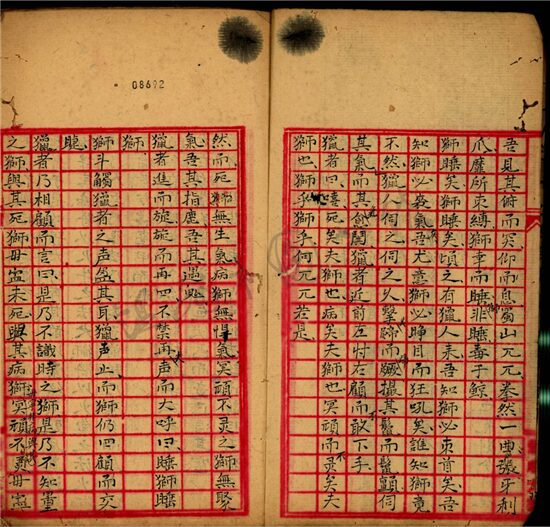 08692
吾見其俯而冥仰而息蜀山兀兀拳然一曲張牙利
爪靡所束縛獅幸而睡非睡毒于鯨
獅睡矣獅睡矣頃之有獵人来吾知獅必束首矣吾
知獅必殺氣吾尤意獅必睜目而狂吼矣誰知獅竟
不然獵人伺之伺之久擊蹄而蹶撮其鬣而鬣顫伺
其氣而其創開獵者近前左忖右顧而敢下手
獵者曰嘻死矣夫獅也病矣夫獅也冥頑而不灵矣夫
獅也獅乎獅乎何兀兀若是
然而死獅無生氣病獅無悍氣冥頑不灵之獅無堅
氣吾其指塵吾其過必
獵者進而旋旋而再四不禁再声而大呼曰睡獅睡
獅
獅斗觸獵者之声盈其耳獵声止而獅仍四顧而交
睫
獵者乃相顧而言曰是乃不識時之獅是乃不知量
之獅與其死獅毋寍未死與其病獅冥頑不灵毋寍